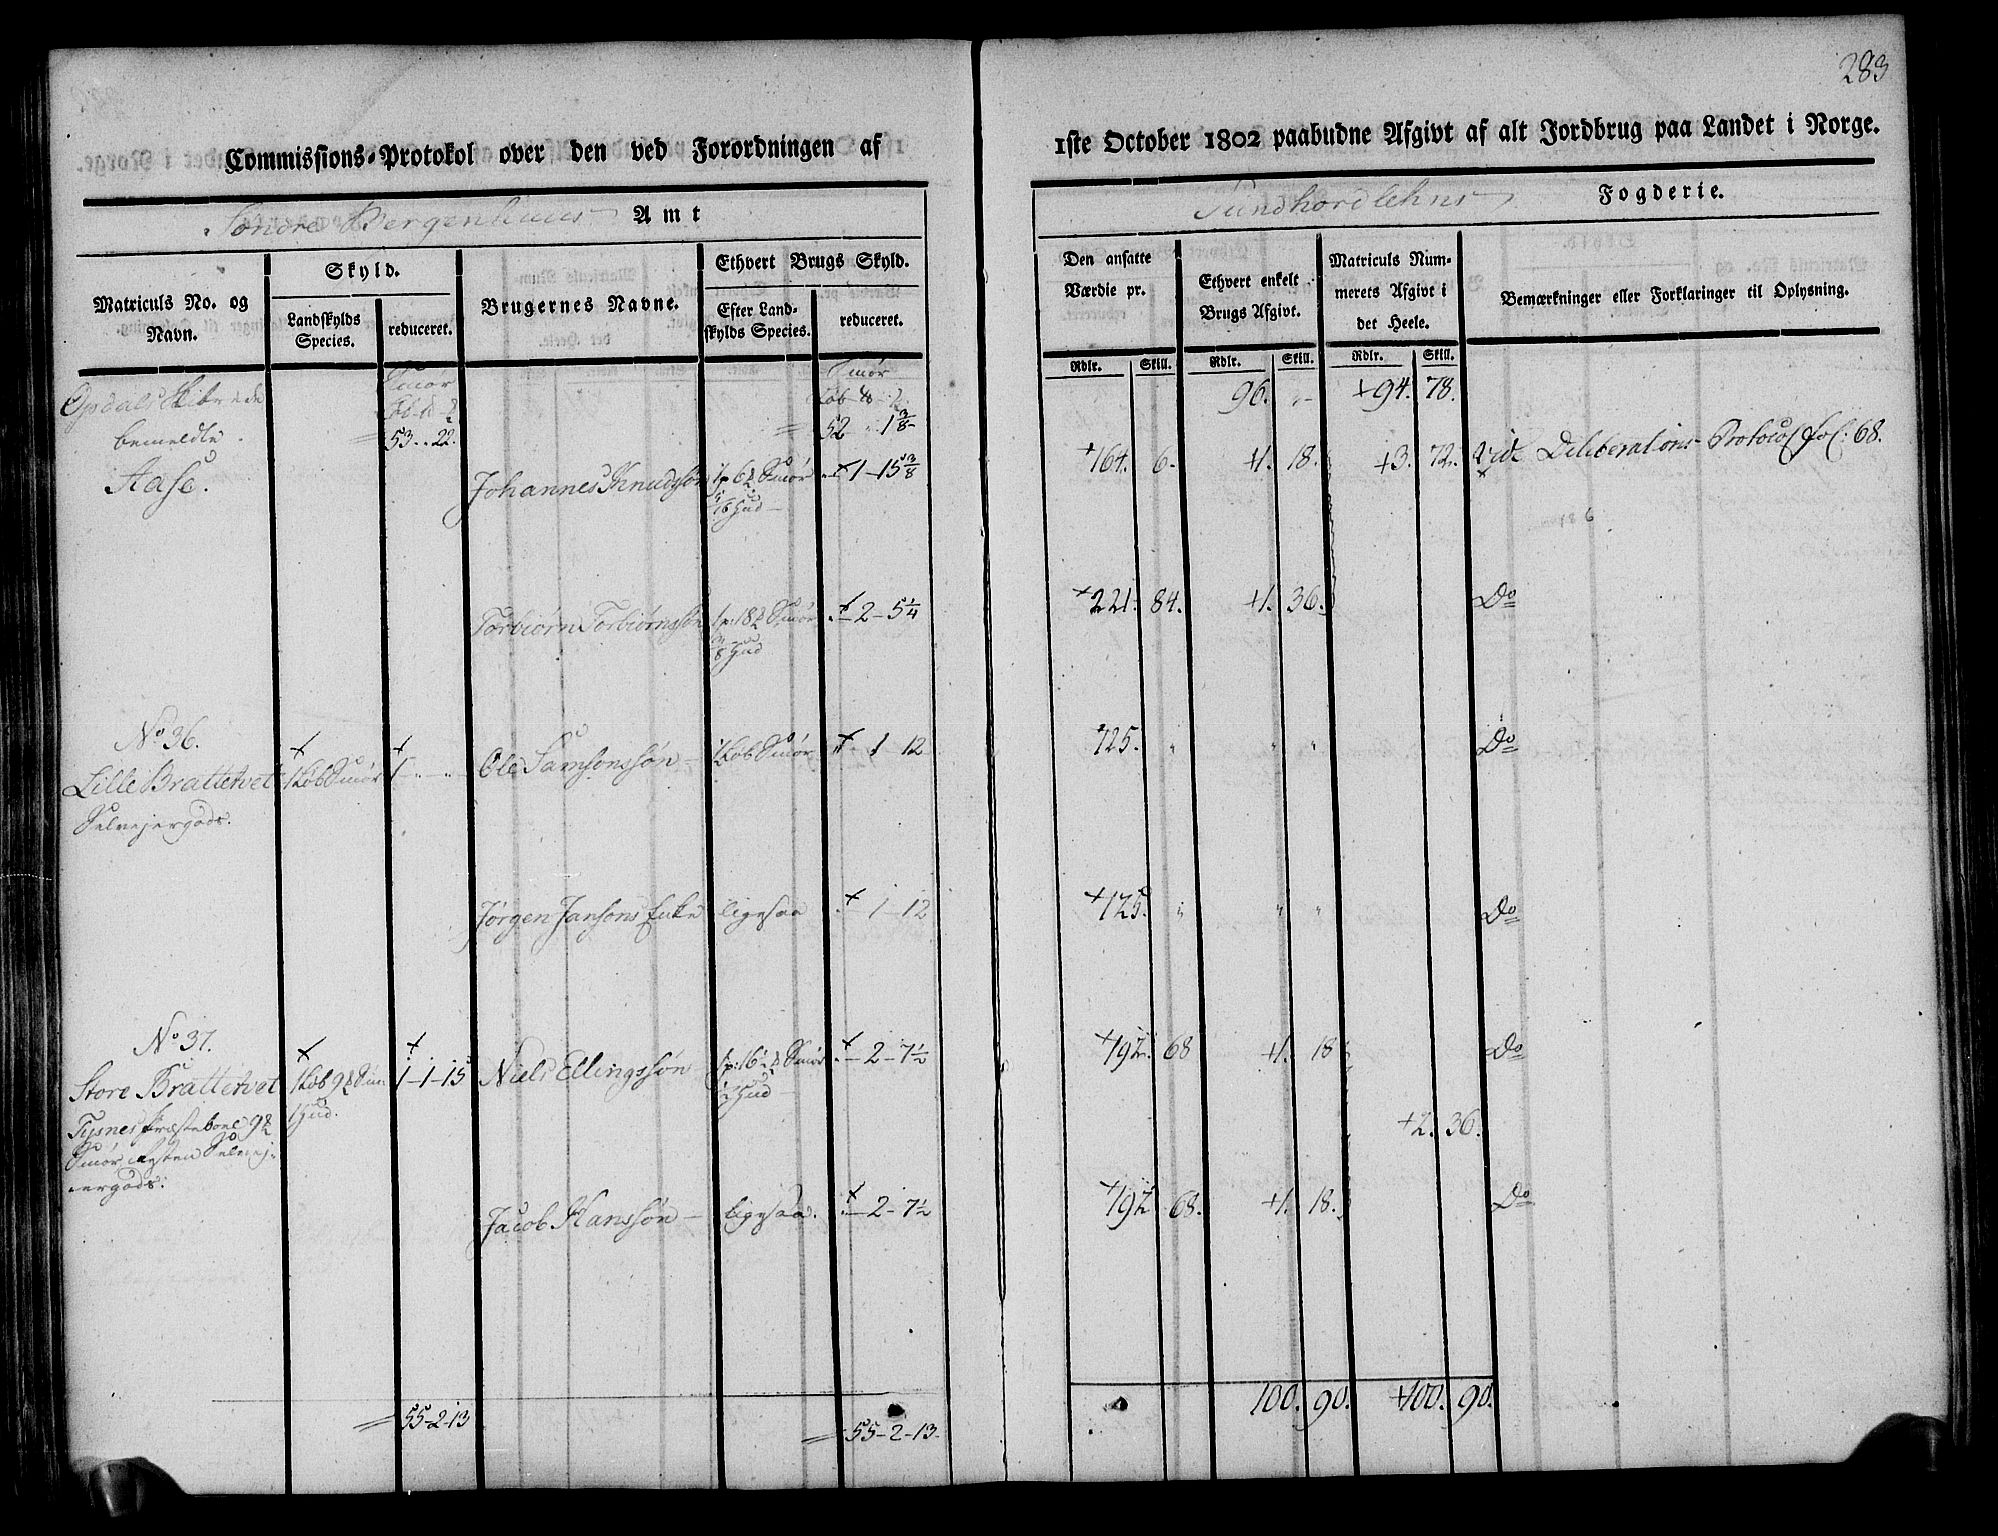 283
Commissions-Protokol over den ved Forordningen af 1ste October 1802 paabudne Afgivt af alt Jordbrug paa Landet i Norge.
Søndre Bergenhuus Amt
Sundhordlehns Fogderie.
Matriculs No. og Navn.
Skyld.
Landskylds Species.
reduceret.
Brugernes Navne.
Ethvert Brugs Skyld.
Efter Landskylds Species.
reduceret.
Den ansatte Værdie pr.
Rdlr. Skill.
Ethvert enkelt Brugs Afgivt.
Rdlr. Skill.
Matriculs Nummerets Afgivt i det Heele.
Rdlr. Skill.
Bemærkninger eller Forklaringer til Oplysning.
Smør Smør
Opdals Skibrede 96. „ +94. 78.
bemeldte 53 „ 22 52 „ 1 3/8
Aase. Johannes Knudssøn 1p 6 Smør +1-15 3/8 +164. 6. +1. 18. +3. 72. Vid Deliberations Protocol Fol: 68.
5/16 Hud
Torbiørn Torbiørnssøn 1p: 18 Smør +-2-5 1/4 +221. 84. +1. 36. Do
3/8 Hud
No 36.
Lille Brattetvet 1 Løb Smør 1 „ „ Ole Samsonssøn Løb Smør + 1 12 +125. „ „ „ Do
Selvejergods.
Jørgen Jansons Enke ligesaa +-1-12 +125. „ „ „ Do
No 37.
Store Brattetvet 1 Løb 9 Smør 1-1-15 Niels Ellingssøn 1p: 16 1/2 Smør +-2-7 1/2 +192. 68 +1. 18. Do
1 Hud. 1/2 Hud
Tysnes Præsteboel 9 +2. 36.
Smør resten Selvej-
ergods. Jacob Hanssøn ligesaa. +-2-7 1/2 +192 68. +1. 18. Do
55-2-13 55-2-13 100. 90. +100. 90.